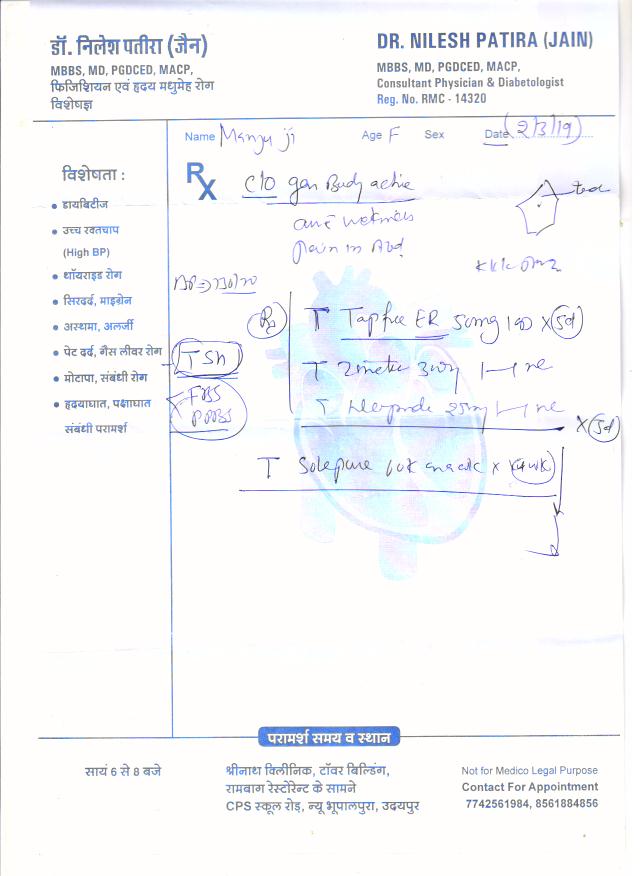 डॉ. निलेश पतीरा (जैन)
MBBS, MD, PGDCED, MACP,
फिजिशियन एवं हृदय मधुमेह रोग
विशेषज्ञ
DR. NILESH PATIRA (JAIN)
MBBS, MD, PGDCED, MACP,
Consultant Physician & Diabetologist
Reg. No. RMC - 14320
Name Manju ji Age F Sex Date 2/3/19
विशेषता :
• डायबिटीज
• उच्च रक्तचाप
(High BP)
• थॉयराइड रोग
• सिरदर्द, माइग्रेन
• अस्थमा, अलर्जी
• पेट दर्द, गैस लीवर रोग
• मोटापा, संबंधी रोग
• हृदयाघात, पक्षाघात
संबंधी परामर्श
Rx
C/O gen Body ache
pain in Abd
TSH
FBS
PPBS
Rx
T ER 50mg X 5d
T
T
X 5d
T 60K X
परामर्श समय व स्थान
सायं 6 से 8 बजे
श्रीनाथ क्लिीनिक, टॉवर बिल्डिंग,
रामबाग रेस्टोरेन्ट के सामने
CPS स्कूल रोड़, न्यू भूपालपुरा, उदयपुर
Not for Medico Legal Purpose
Contact For Appointment
7742561984, 8561884856